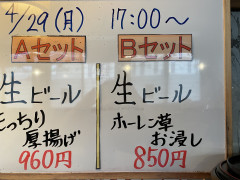 4/29(月) 17:00～
Aセット
生ビール
もっちり
厚揚げ
960円
Bセット
生ビール
ホーレン草
お浸し
850円